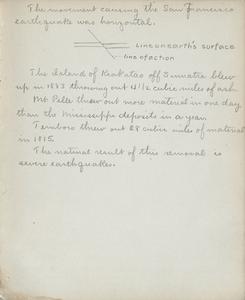 The movement causing the San Francisco
earthquake was horizontal.
line in earth's surface
line of action
The Island of Krakatao off Sumatra blew
up in 1883 throwing out 4 1/2 cubic miles of ash.
Mt Pelle threw out more material in one day
than the Mississippi deposits in a year.
Temboro threw out 28 cubic miles of material
in 1815.
The natural result of this removal is
severe earthquakes.